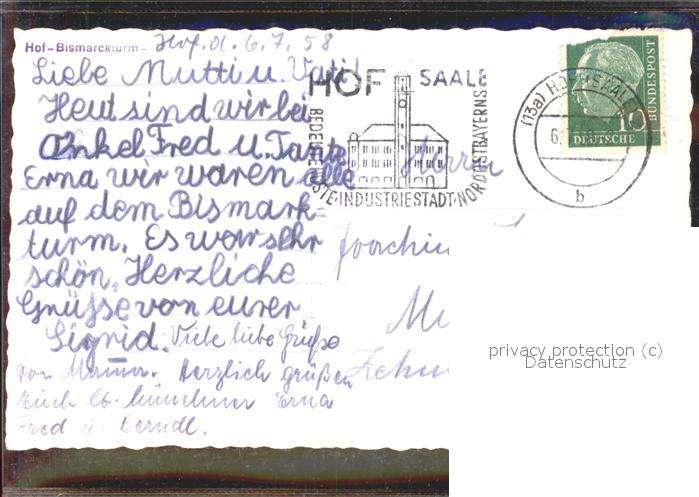 Hof-Bismarckturm- Hof. d. 6.7.58
Liebe Mutti u. Vati!
Heut sind wir bei
Onkel Fred u. Tante
Erna wir waren alle
auf dem Bismark-
turm. Es war sehr
schön. Herzliche
Grüsse von eurer
Sigrid. Viele liebe Grüße
von Mama. Herzlich grüßen
Euch lb. Münchner Erna
Fred u. Berndl.
HOF SAALE
BEDEUTENDSTE·INDUSTRIESTADT·NORDOSTBAYERNS
(13a) HOF (SAALE)
6.
b
10
DEUTSCHE
BUNDESPOST
Herrn
Joachim
privacy protection (c)
Datenschutz